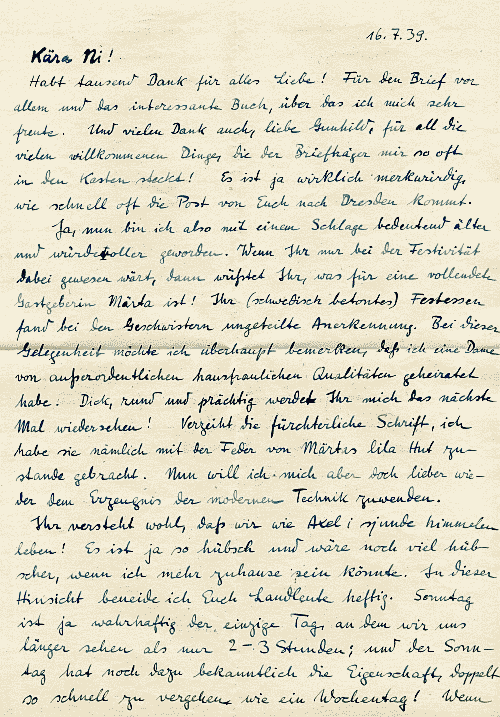 16.7.39.
Kära Ni!
Habt tausend Dank für alles Liebe! Für den Brief vor
allem und das interessante Buch, über das ich mich sehr
freute. Und vielen Dank auch, liebe Gunhild, für all die
vielen willkommenen Dinge, die der Briefträger mir so oft
in den Kasten steckt! Es ist ja wirklich merkwürdig,
wie schnell oft die Post von Euch nach Dresden kommt.
Ja, nun bin ich also mit einem Schlage bedeutend älter
und würdevoller geworden. Wenn Ihr nur bei der Festivität
dabei gewesen wärt, dann wüßtet Ihr, was für eine vollendete
Gastgeberin Märta ist! Ihr (schwedisch betontes) Festessen
fand bei den Geschwistern ungeteilte Anerkennung. Bei dieser
Gelegenheit möchte ich überhaupt bemerken, daß ich eine Dame
von außerordentlichen hausfraulichen Qualitäten geheiratet
habe: Dick, rund und prächtig werdet Ihr mich das nächste
Mal wiedersehen! Verzeiht die fürchterliche Schrift, ich
habe sie nämlich mit der Feder von Märtas lila Hut zu-
stande gebracht. Nun will ich mich aber doch lieber wie-
der dem Erzeugnis der modernen Technik zuwenden.
Ihr versteht wohl, daß wir wie Axel i sjunde himmelen
leben! Es ist ja so hübsch und wäre noch viel hüb-
scher, wenn ich mehr zuhause sein könnte. In dieser
Hinsicht beneide ich Euch Landleute heftig. Sonntag
ist ja wahrhaftig der einzige Tag, an dem wir uns
länger sehen als nur 2-3 Stunden; und der Sonn-
tag hat noch dazu bekanntlich die Eigenschaft, doppelt
so schnell zu vergehen, wie ein Wochentag! Wenn